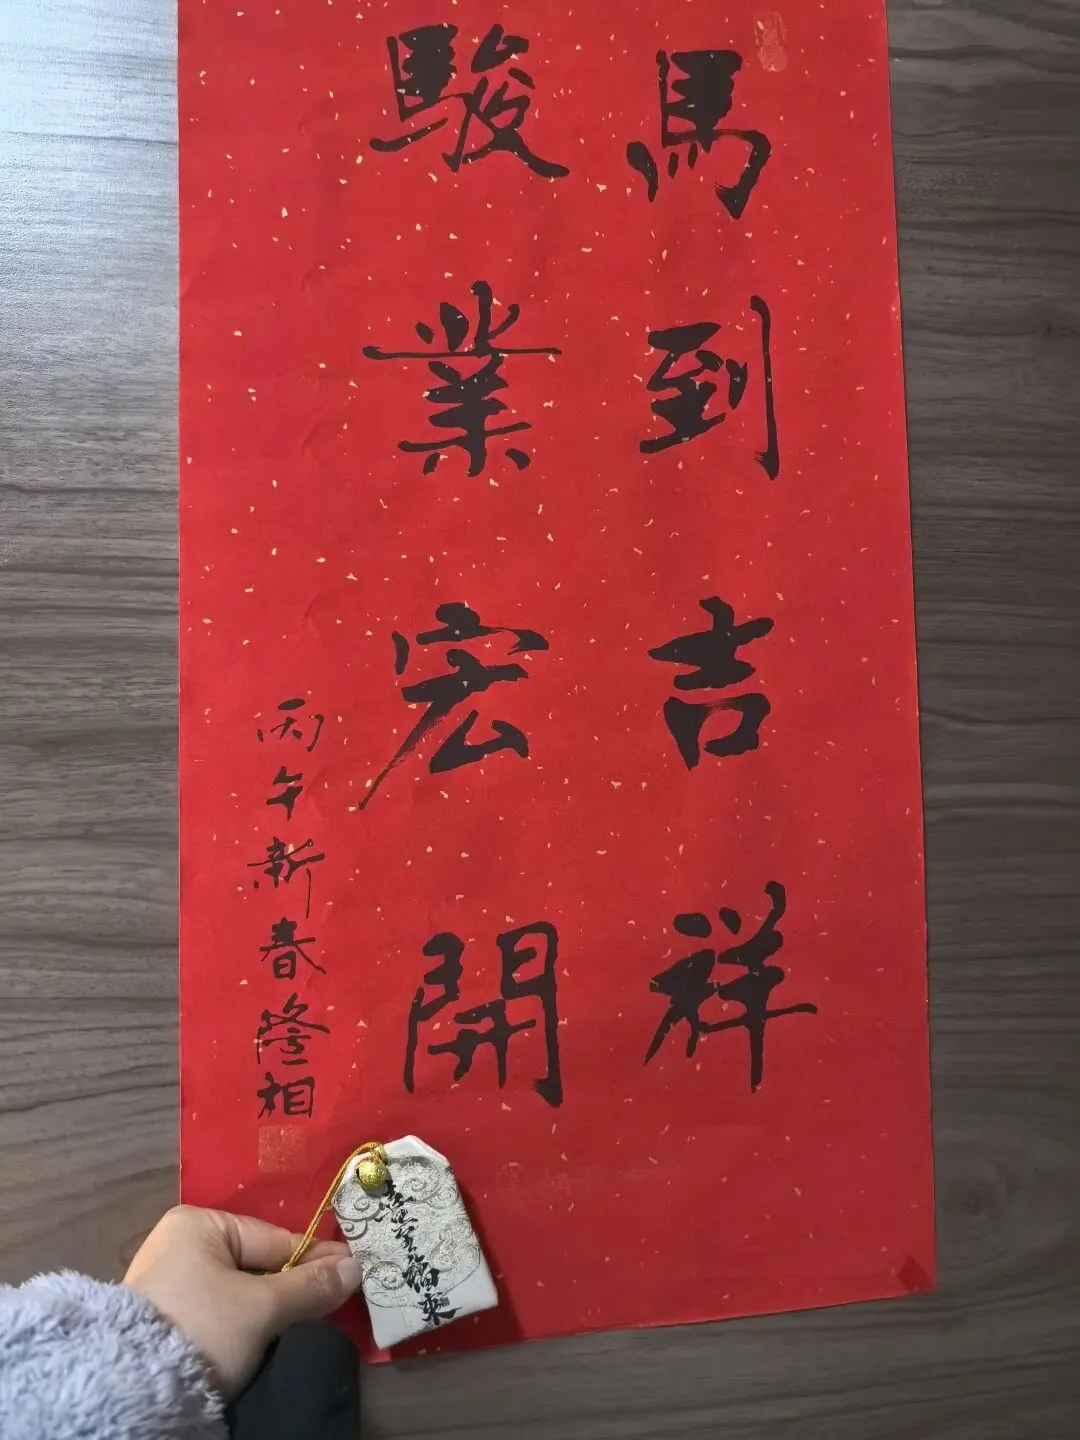 馬到吉祥
駿業宏開
丙午新春隆相
福來